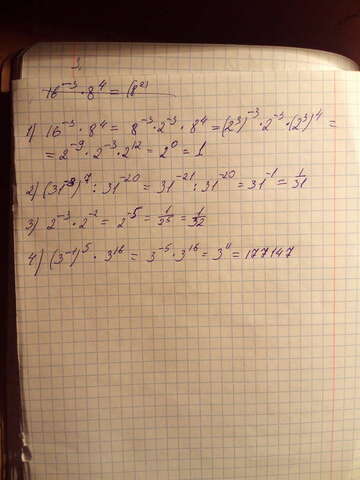 16⁻³ · 8⁴ = (8²)
1) 16⁻³ · 8⁴ = 8⁻³ · 2⁻³ · 8⁴ = (2³)⁻³ · 2⁻³ · (2³)⁴ =
= 2⁻⁹ · 2⁻³ · 2¹² = 2⁰ = 1
2) (31⁻³)⁷ : 31⁻²⁰ = 31⁻²¹ : 31⁻²⁰ = 31⁻¹ = 1/31
3) 2⁻³ · 2⁻² = 2⁻⁵ = 1/2⁵ = 1/32
4) (3⁻¹)⁵ · 3¹⁶ = 3⁻⁵ · 3¹⁶ = 3¹¹ = 177147